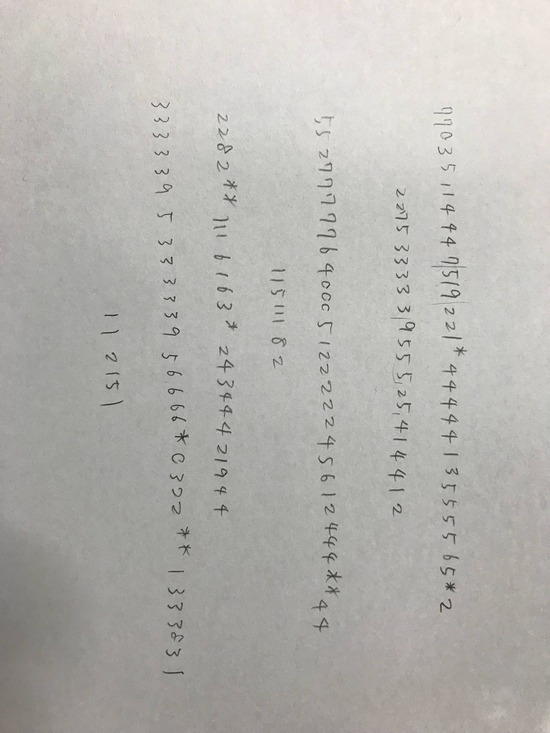 77035114447519221*4444413555565*2
22753333395555,25,414412
5527777764000512222245612444**44
11511182
2282**1116163*24344421944
3333339533333956666*0322**1333831
112151